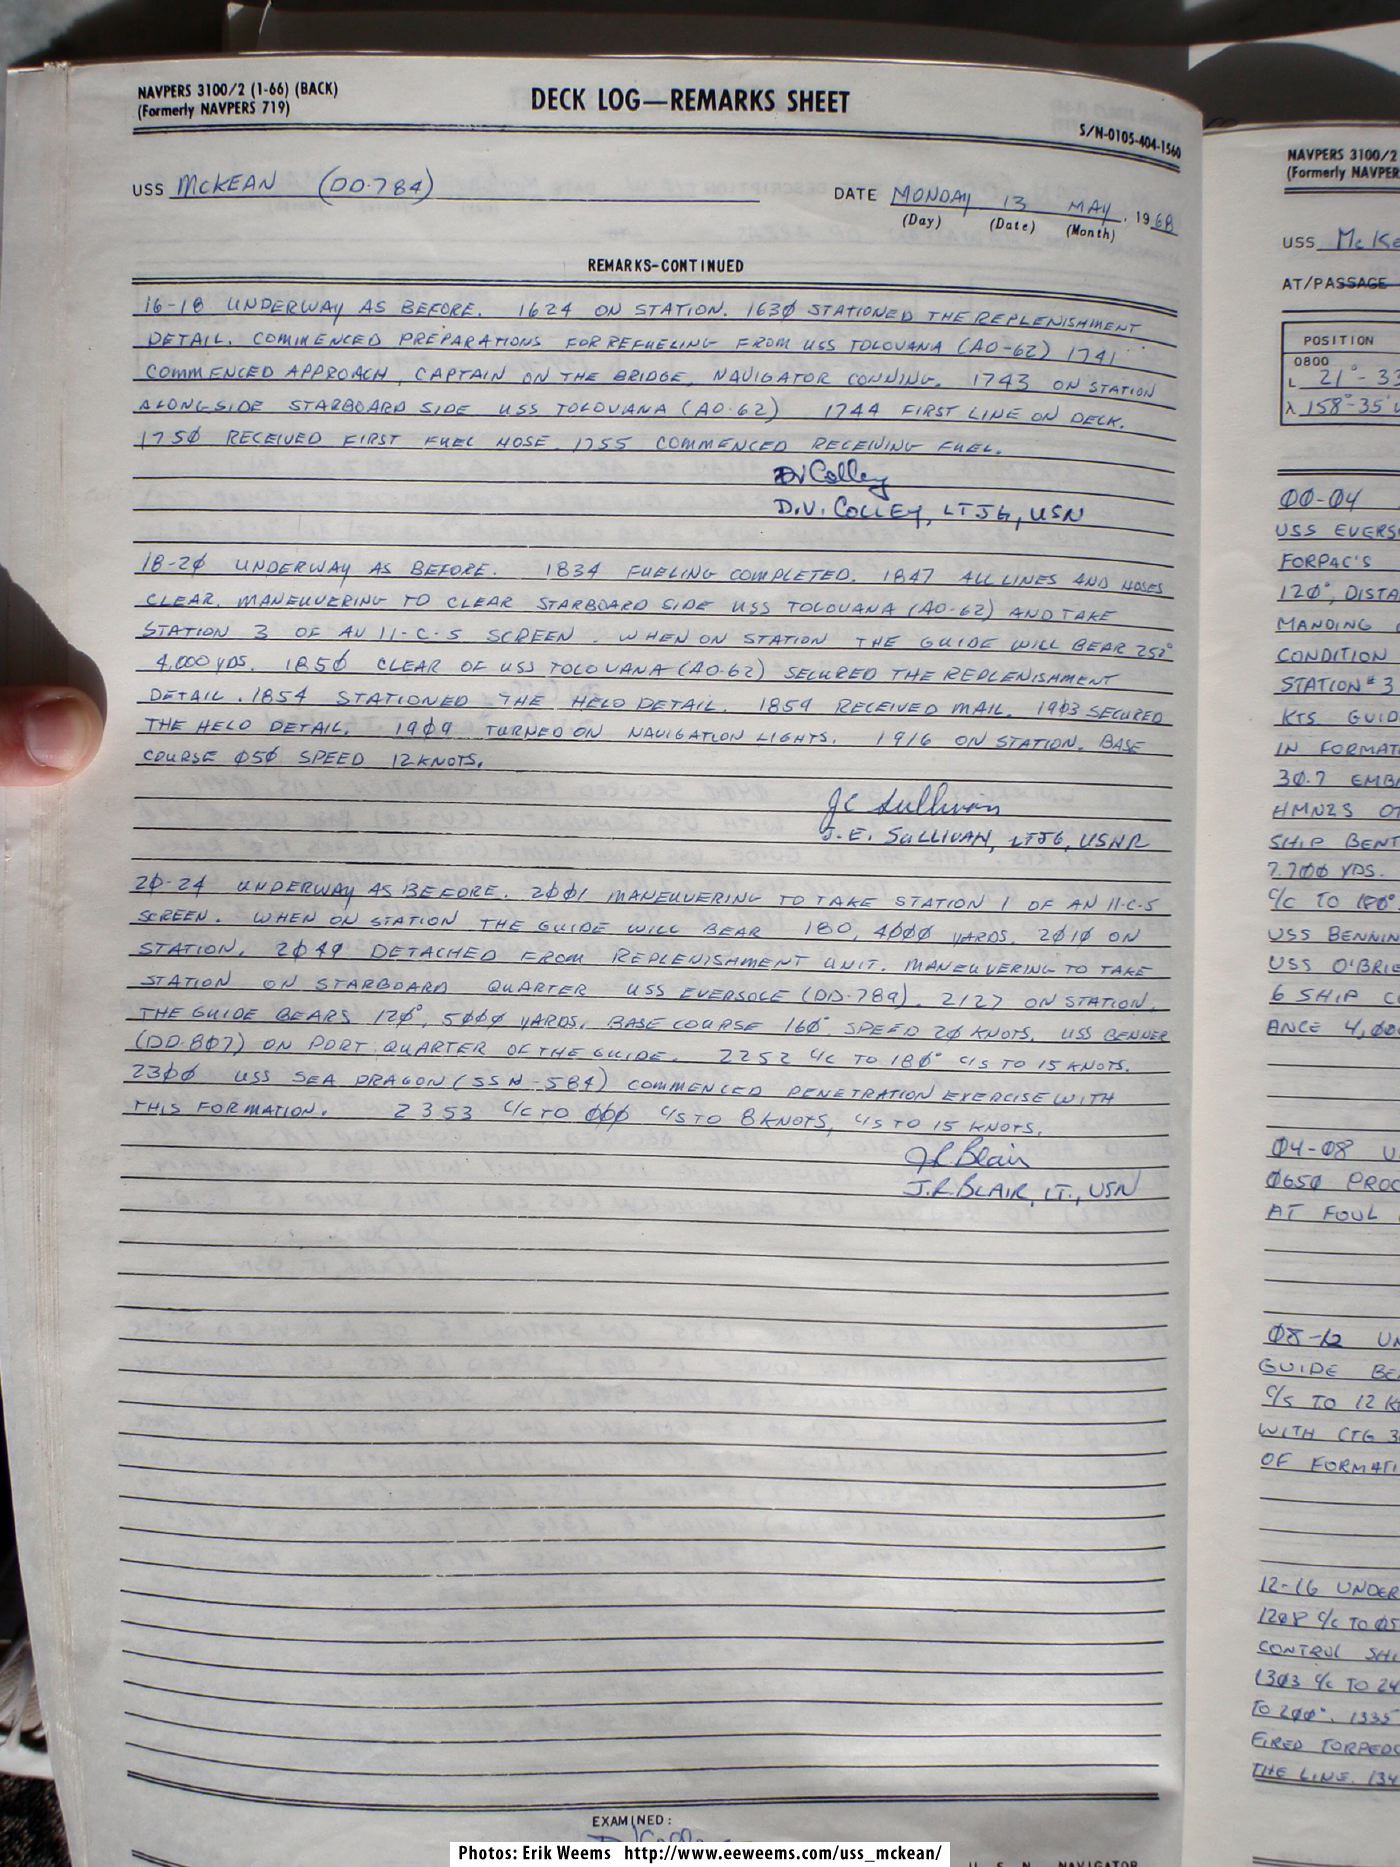 NAVPERS 3100/2 (1-66) (BACK)
(Formerly NAVPERS 719)
DECK LOG—REMARKS SHEET
S/N-0105-404-1560
USS McKEAN (DD-784)
DATE MONDAY 13 MAY, 1968
(Day) (Date) (Month)
REMARKS-CONTINUED
16-18 UNDERWAY AS BEFORE. 1624 ON STATION. 163Ø STATIONED THE REPLENISHMENT
DETAIL. COMMENCED PREPARATIONS FOR REFUELING FROM USS TOLOVANA (AO-62) 1741
COMMENCED APPROACH, CAPTAIN ON THE BRIDGE, NAVIGATOR CONNING. 1743 ON STATION
ALONGSIDE STARBOARD SIDE USS TOLOVANA (AO-62) 1744 FIRST LINE ON DECK.
175Ø RECEIVED FIRST FUEL HOSE. 1755 COMMENCED RECEIVING FUEL.
DV Colley
D.V. COLLEY, LTJG, USN
18-2Ø UNDERWAY AS BEFORE. 1834 FUELING COMPLETED. 1847 ALL LINES AND HOSES
CLEAR. MANEUVERING TO CLEAR STARBOARD SIDE USS TOLOVANA (AO-62) AND TAKE
STATION 3 OF AN 11-C-5 SCREEN. WHEN ON STATION THE GUIDE WILL BEAR
4,000 YDS. 185Ø CLEAR OF USS TOLOVANA (AO-62) SECURED THE REPLENISHMENT
DETAIL. 1854 STATIONED THE HELO DETAIL. 1859 RECEIVED MAIL. 19Ø3 SECURED
THE HELO DETAIL. 19Ø9 TURNED ON NAVIGATION LIGHTS. 1916 ON STATION. BASE
COURSE Ø5Ø SPEED 12 KNOTS.
JE Sullivan
J.E. SULLIVAN, LTJG, USNR
2Ø-24 UNDERWAY AS BEFORE. 2ØØ1 MANEUVERING TO TAKE STATION 1 OF AN 11-C-5
SCREEN. WHEN ON STATION THE GUIDE WILL BEAR 180, 4ØØØ YARDS. 2Ø1Ø ON
STATION. 2Ø49 DETACHED FROM REPLENISHMENT UNIT. MANEUVERING TO TAKE
STATION ON STARBOARD QUARTER USS EVERSOLE (DD-789). 2127 ON STATION,
THE GUIDE BEARS 12Ø°, 5ØØØ YARDS. BASE COURSE 16Ø° SPEED 2Ø KNOTS. USS BENNER
(DD-8Ø7) ON PORT QUARTER OF THE GUIDE. 2252 C/C TO 18Ø° C/S TO 15 KNOTS.
23ØØ USS SEA DRAGON (SSN-584) COMMENCED PENETRATION EXERCISE WITH
THIS FORMATION. 2353 C/C TO ØØØ C/S TO 8 KNOTS, C/S TO 15 KNOTS.
JR Blair
J.R. BLAIR, LT., USN
EXAMINED:
U S N NAVIGATOR
NAVPERS 3100/2
(Formerly NAVPER
USS McKE
AT/PASSAGE
POSITION
0800
L 21°-33
λ 158°-35'
ØØ-Ø4
USS EVERS
FORPAC'S
12Ø°, DISTA
MANDING
CONDITION
STATION #3
KTS GUID
IN FORMAT
3Ø.7 EMB
HMNZS OT
SHIP BENT
7.7ØØ YDS.
C/C TO 18Ø°
USS BENNIN
USS O'BRIE
6 SHIP C
ANCE 4,ØØ
Ø4-Ø8 U
Ø65Ø PROC
AT FOUL
Ø8-12 UN
GUIDE BE
C/S TO 12 K
WITH CTG 3
OF FORMATI
12-16 UNDER
12Ø8 C/C TO Ø5
CONTROL SHI
13Ø3 C/C TO 24
TO 2ØØ°. 1335
FIRED TORPEDO
THE LINE. 134
Photos: Erik Weems http://www.eeweems.com/uss_mckean/